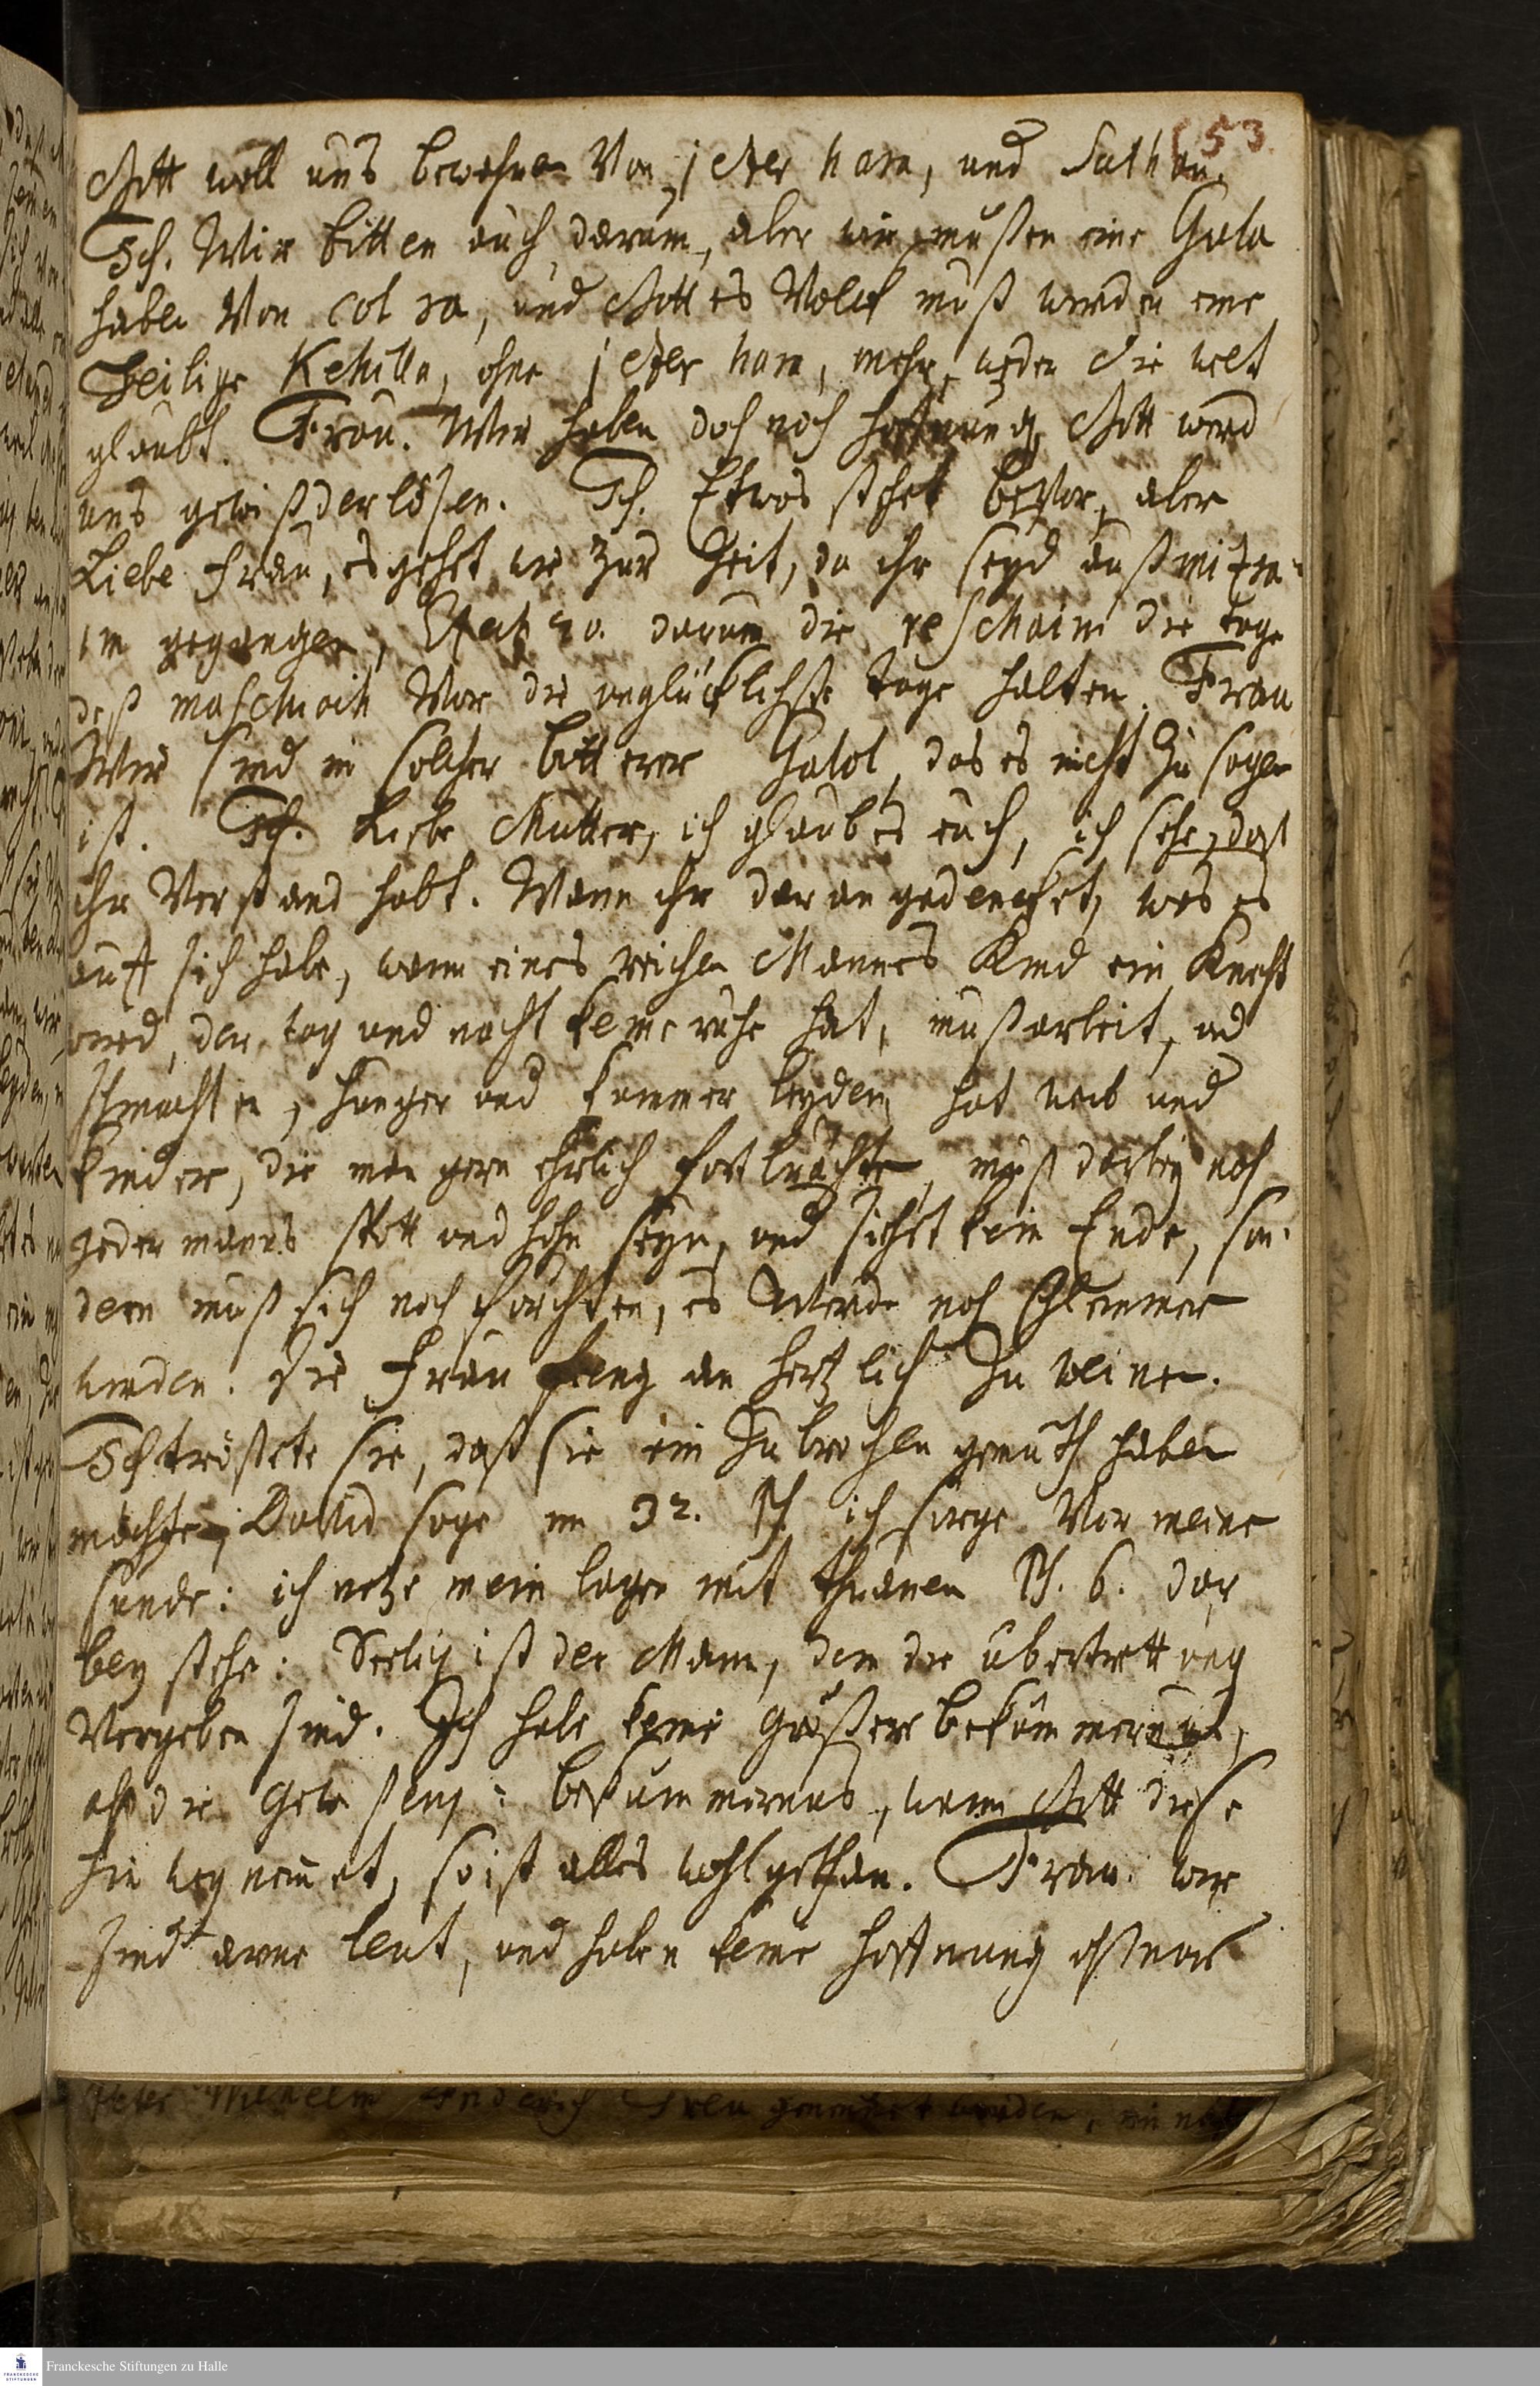 53
Gott woll uns bewahren Von jezer hara, und Sathan.
Ich. Wir bitten auch darum, aber wir mußen eine Gula
haben Von col ra, und Gottes Volck muß werden eine
Heilige Kehilla, ohne jezer hara, mehr, weder die welt
glaubt. Frau. Wir haben doch noch hoffnung Gott werd
uns gewiß derlösen. Ich. Etwas stehet beVor, aber
Liebe Frau, es gehet wie zur Zeit, da ihr seyd auß mizra-
im gegangen, 20. darum die reschaim die tage
deß maschiach Vor die unglücklichste tage halten. Frau
Wir sind in solcher bitterer Galol, das es nicht zu sagen
ist. Ich. Liebe Mutter, ich glaub es euch, ich sehe, daß
ihr Verstand habt. Wann ihr daran gedencket, was es
auf sich habe, wann eines reichen Mannes Kind ein Knecht
wird, der tag und nacht keine ruhe hat, muß arbeit, und
schmachten, hunger und kummer leyden, hat weib und
kinder, die man gern ehrlich fortbrächte, muß darbey noch
jedermanns spott und hohn seyn, und sichet kein Ende, son-
dern muß sich noch förchten, es werde noch schlimmer
werden. Die Frau fieng an hertzlich zu weinen.
Ich tröstete sie, daß sie ein zubrochen gemüth haben
möchte, David sage im 32. Ps. ich sorge Vor meine
sünde: ich netze mein lager mit thränen Ps. 6. dar
bey stehe: Seelig ist der Mann, dem die übertrettung
Vergeben sind. Ich habe keine größere bekümmernus,
als die bekümmernus, wann Gott diese
hin weg nimet, so ist alles wohlgethan. Frau. wir
sind arme leut, und haben keine hoffnung
Wilhelm
Franckesche Stiftungen zu Halle